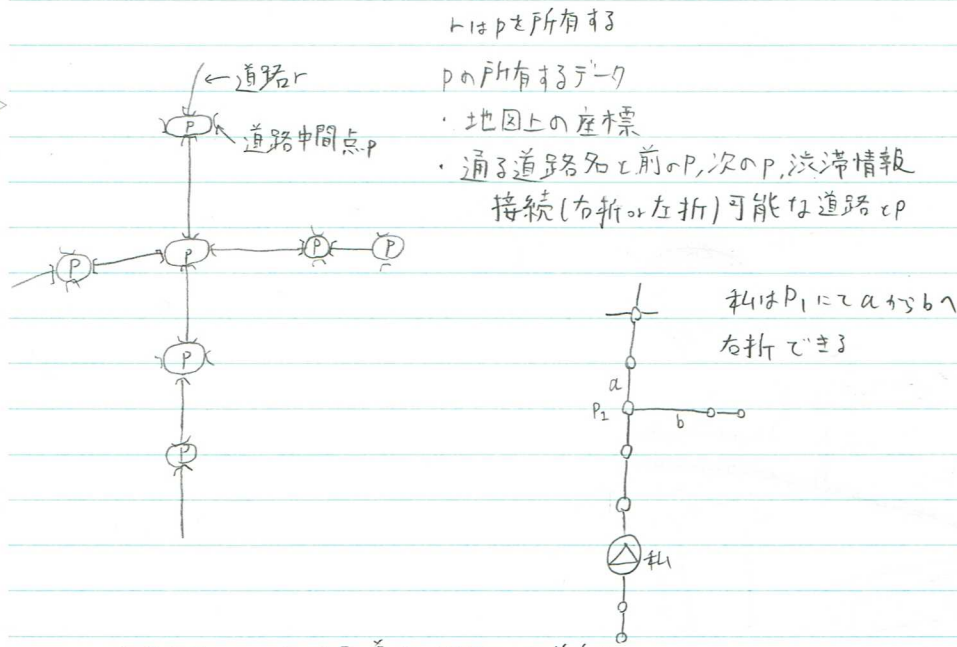 rはpを所有する
←道路r
pの所有するデータ
道路中間点p
・地図上の座標
・通る道路名と前のP,次のP,渋滞情報
接続(右折or左折)可能な道路とp
P
P
P
P
P
P
P
私はP₁にてaからbへ
右折できる
a
P₁
b
私